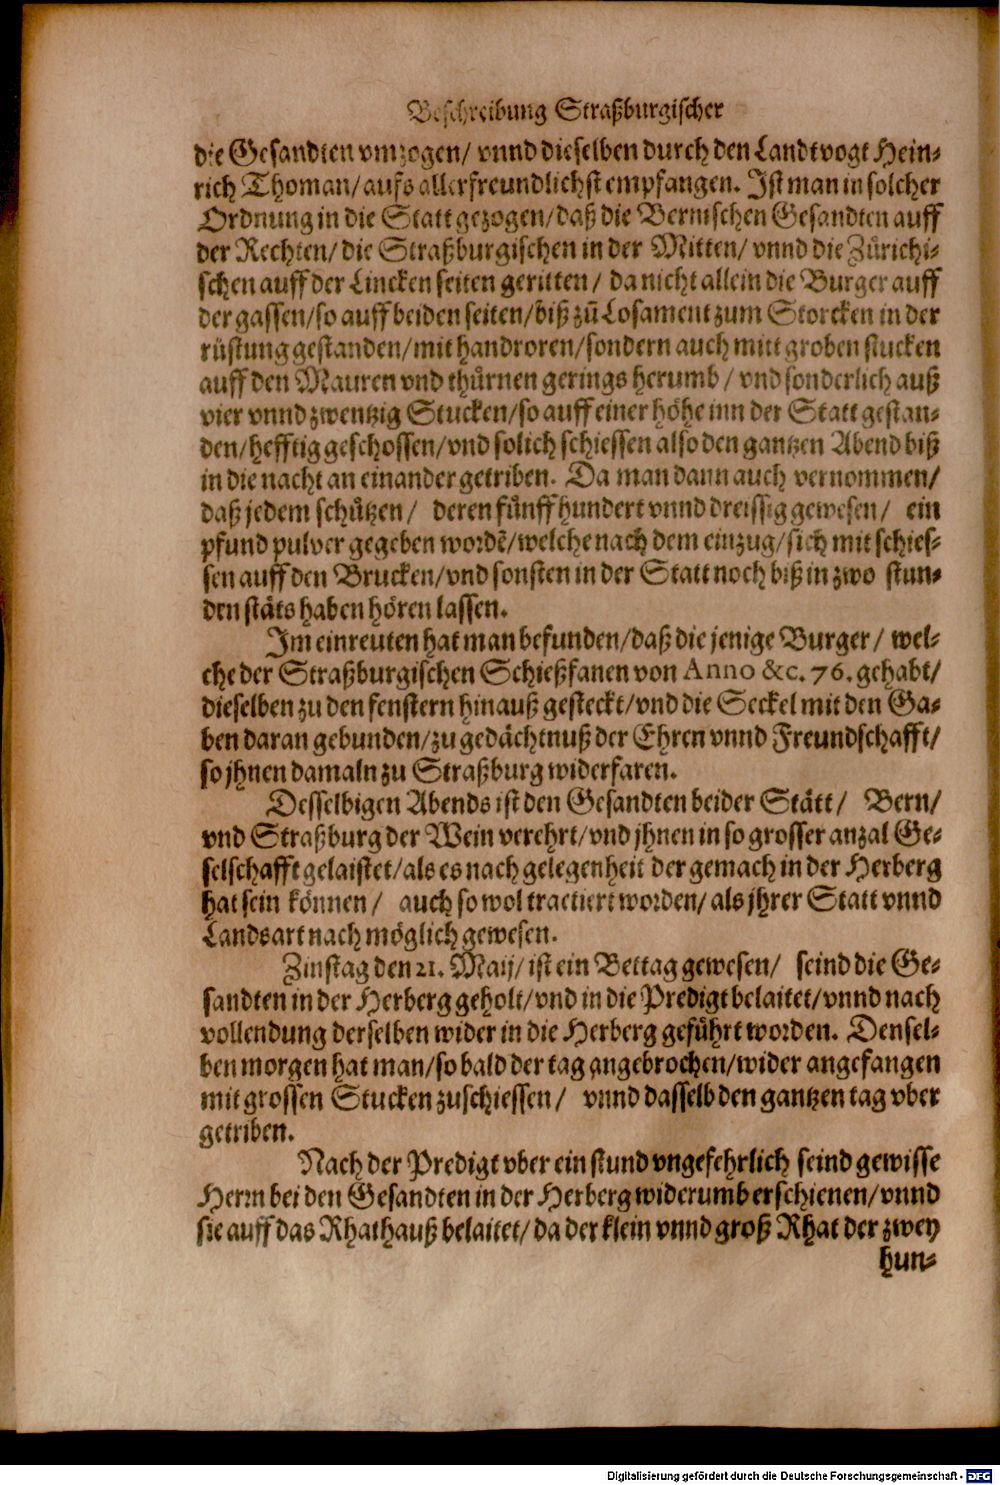 Beschreibung Straßburgischer
die Gesandten vmzogen/ vnnd dieselben durch den Landtvogt Hein-
rich Thoman/ aufs allerfreundlichst empfangen. Ist man in solcher
Ordnung in die Statt gezogen/ daß die Bernischen Gesandten auff
der Rechten/ die Straßburgischen in der Mitten/ vnnd die Zürichi-
schen auff der Lincken seiten geritten/ da nicht allein die Burger auff
der gassen/ so auff beiden seiten/ biß zū Losament zum Storcken in der
rüstung gestanden/ mit handroren/ sondern auch mitt groben stucken
auff den Mauren vnd thürnen gerings herumb/ vnd sonderlich auß
vier vnnd zwentzig Stucken/ so auff einer höhe inn der Statt gestan-
den/ hefftig geschossen/ vnd solich schiessen also den gantzen Abend biß
in die nacht an einander getriben. Da man dann auch vernommen/
daß jedem schützen/ deren fünff hundert vnnd dreissig gewesen/ ein
pfund pulver gegeben wordē/ welche nach dem einzug/ sich mit schies-
sen auff den Brucken/ vnd sonsten in der Statt noch biß in zwo stun-
den stäts haben hören lassen.
Im einreuten hat man befunden/ daß die jenige Burger/ wel-
che der Straßburgischen Schießfanen von Anno &c. 76. gehabt/
dieselben zu den fenstern hinauß gesteckt/ vnd die Seckel mit den Ga-
ben daran gebunden/ zu gedächtnuß der Ehren vnnd Freundschafft/
so jhnen damaln zu Straßburg widerfaren.
Desselbigen Abends ist den Gesandten beider Stätt/ Bern/
vnd Straßburg der Wein verehrt/ vnd jhnen in so grosser anzal Ge-
selschafft gelaistet/ als es nach gelegenheit der gemach in der Herberg
hat sein können/ auch so wol tractiert worden/ als jhrer Statt vnnd
Landsart nach möglich gewesen.
Zinstag den 21. Maij/ ist ein Bettag gewesen/ seind die Ge-
sandten in der Herberg geholt/ vnd in die Predigt belaitet/ vnnd nach
vollendung derselben wider in die Herberg geführt worden. Densel-
ben morgen hat man/ so bald der tag angebrochen/ wider angefangen
mit grossen Stucken zuschiessen/ vnnd dasselb den gantzen tag vber
getriben.
Nach der Predigt vber ein stund vngefehrlich seind gewisse
Herrn bei den Gesandten in der Herberg widerumb erschienen/ vnnd
sie auff das Rhathauß belaitet/ da der klein vnnd groß Rhat der zwey
hun-
Digitalisierung gefördert durch die Deutsche Forschungsgemeinschaft - DFG